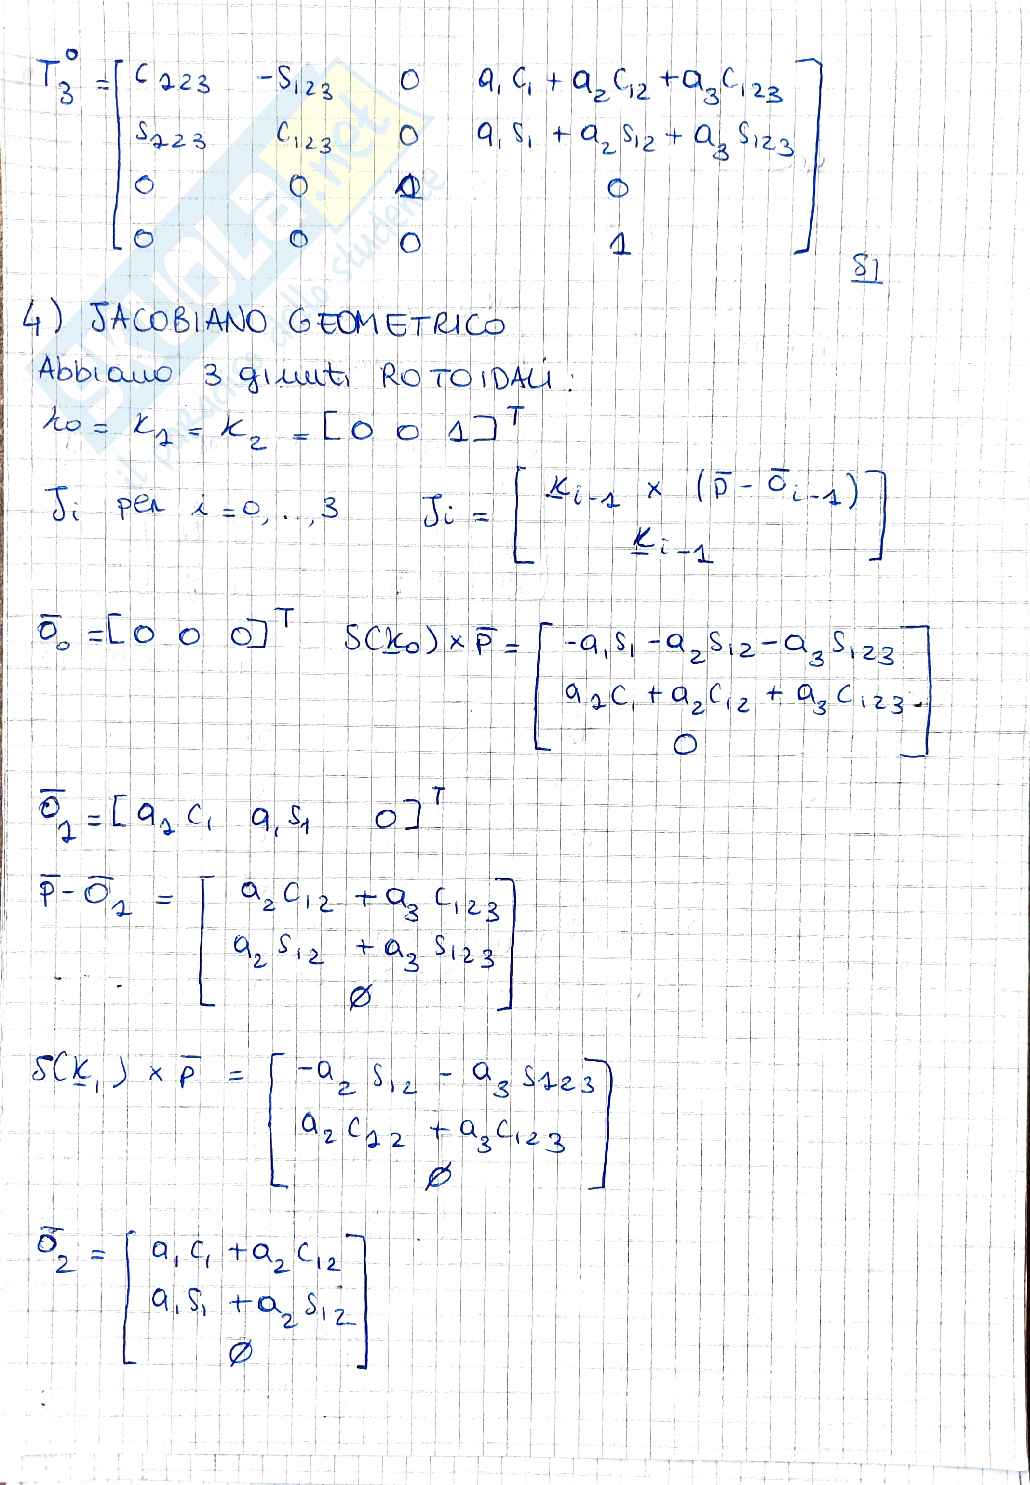 T₃⁰ = [ C₁₂₃ -S₁₂₃ 0 a₁C₁ + a₂C₁₂ + a₃C₁₂₃
S₁₂₃ C₁₂₃ 0 a₁S₁ + a₂S₁₂ + a₃S₁₂₃
0 0 1 0
0 0 0 1 ]
4) JACOBIANO GEOMETRICO
Abbiamo 3 giunti ROTOIDALI:
k₀ = k₁ = k₂ = [0 0 1]ᵀ
Jᵢ per i = 0,..,3 Jᵢ = [ kᵢ₋₁ × (p̄ - ōᵢ₋₁)
kᵢ₋₁ ]
ō₀ = [0 0 0]ᵀ S(k₀) × p̄ = [ -a₁S₁ - a₂S₁₂ - a₃S₁₂₃
a₁C₁ + a₂C₁₂ + a₃C₁₂₃
0 ]
ō₁ = [a₁C₁ a₁S₁ 0]ᵀ
p̄ - ō₁ = [ a₂C₁₂ + a₃C₁₂₃
a₂S₁₂ + a₃S₁₂₃
∅ ]
S(k₁) × p̄ = [ -a₂S₁₂ - a₃S₁₂₃
a₂C₁₂ + a₃C₁₂₃
∅ ]
ō₂ = [ a₁C₁ + a₂C₁₂
a₁S₁ + a₂S₁₂
∅ ]